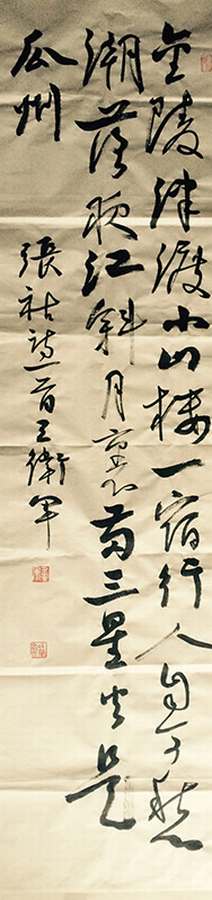 金陵津渡小山樓一宿行人自可愁
潮落夜江斜月裏兩三星火是
瓜州
張祜詩一首王衛軍